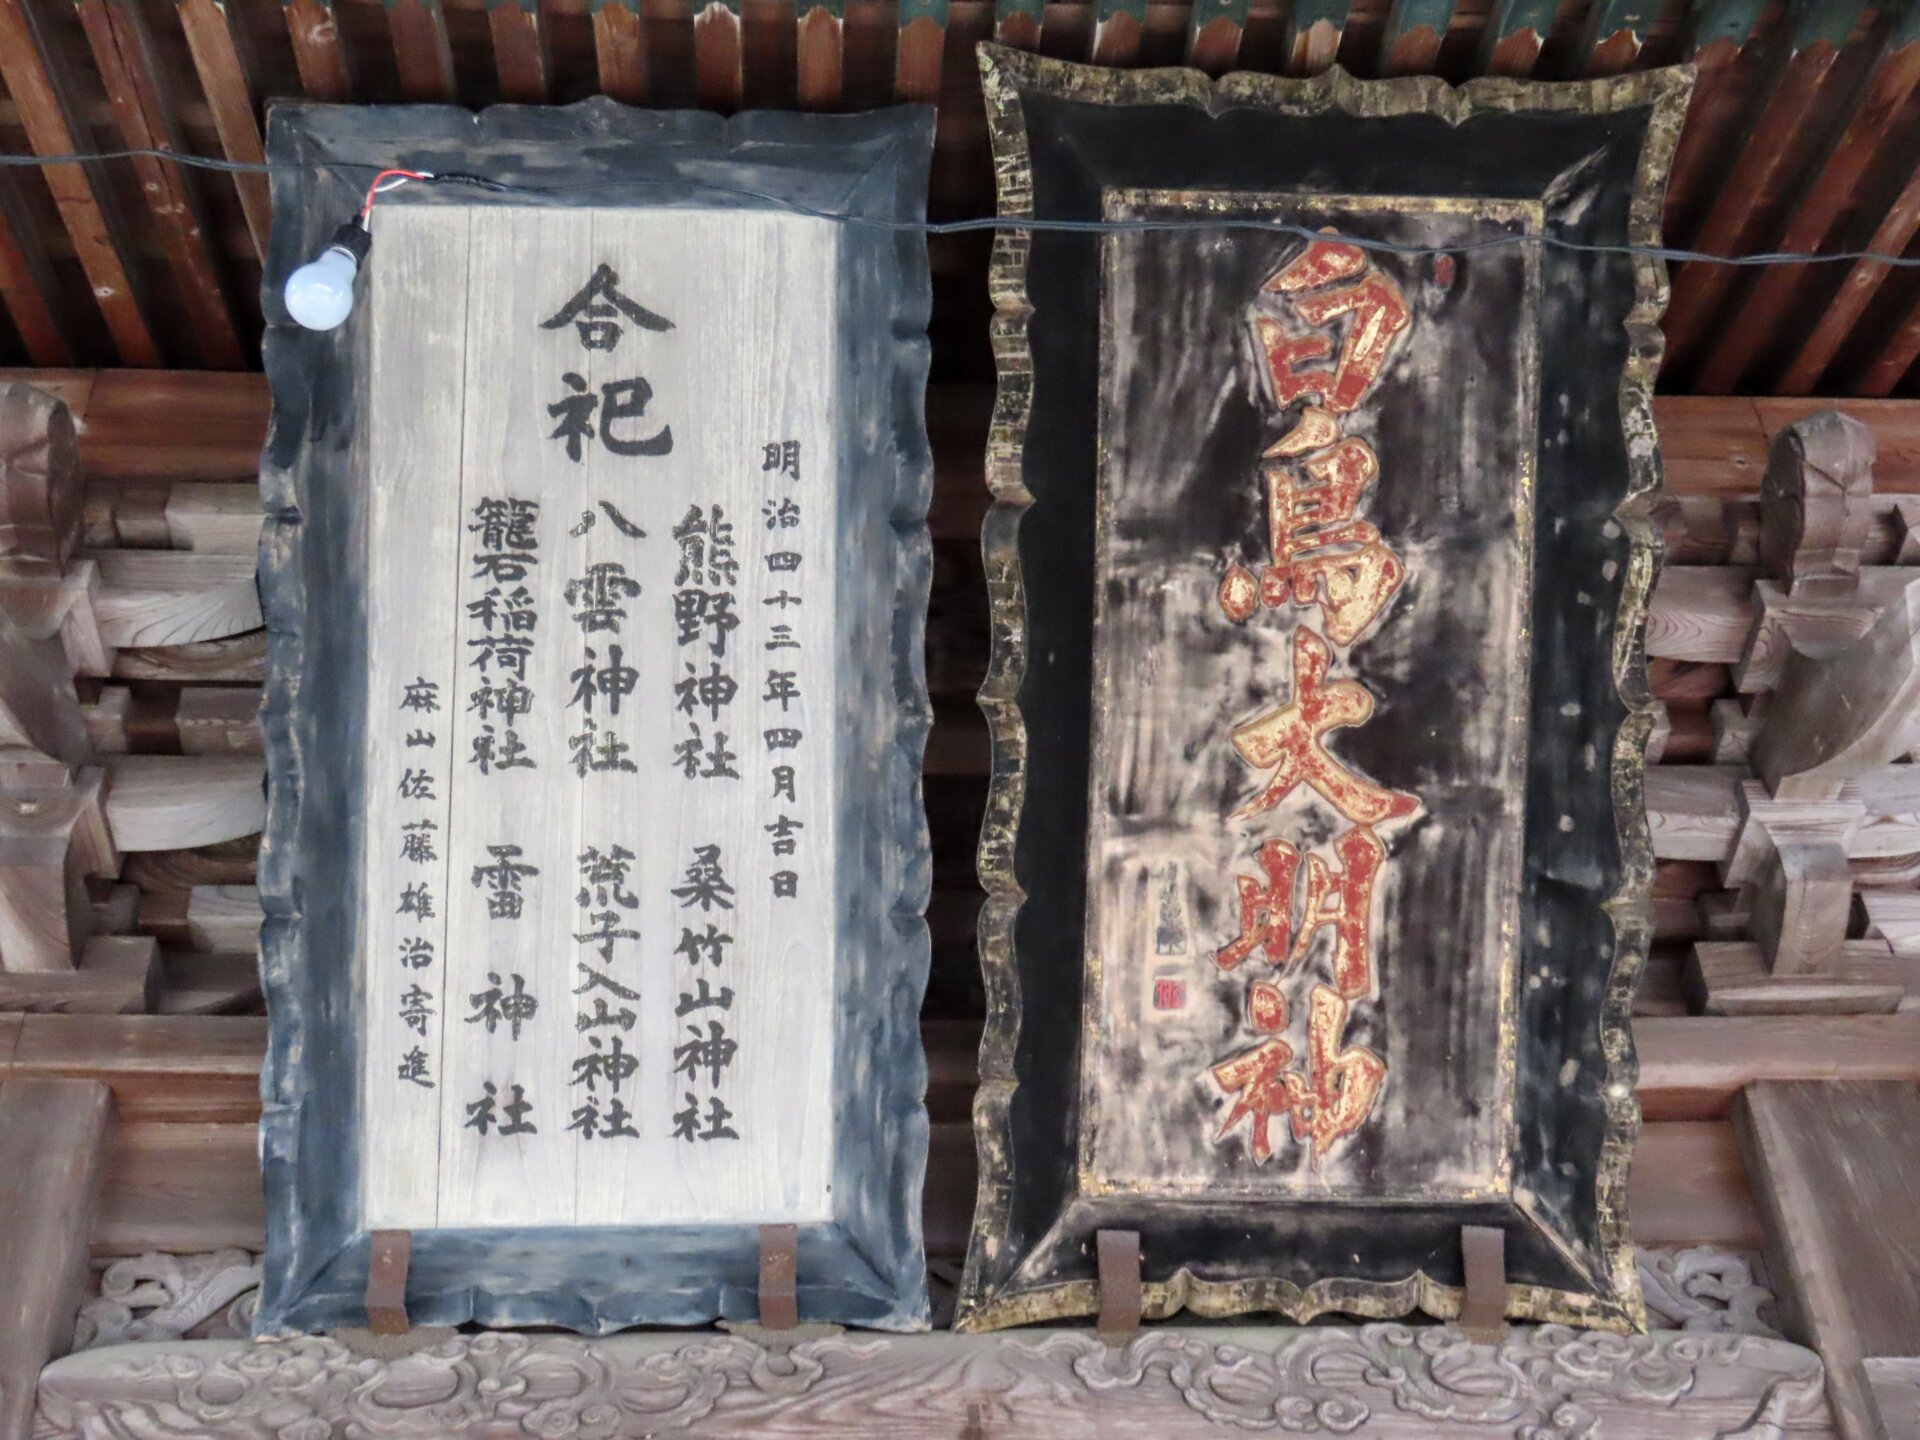 白鳥大明神
合祀
明治四十三年四月吉日
熊野神社　桑竹山神社
八雲神社　荒子入山神社
籠石稲荷神社　雷神社
麻山佐藤雄治寄進